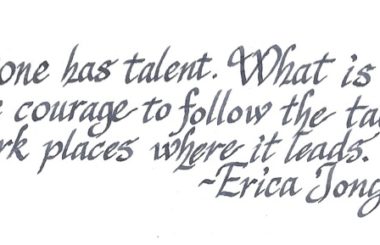 one has talent. What is
e courage to follow the ta
rk places where it leads.
-Erica Jong